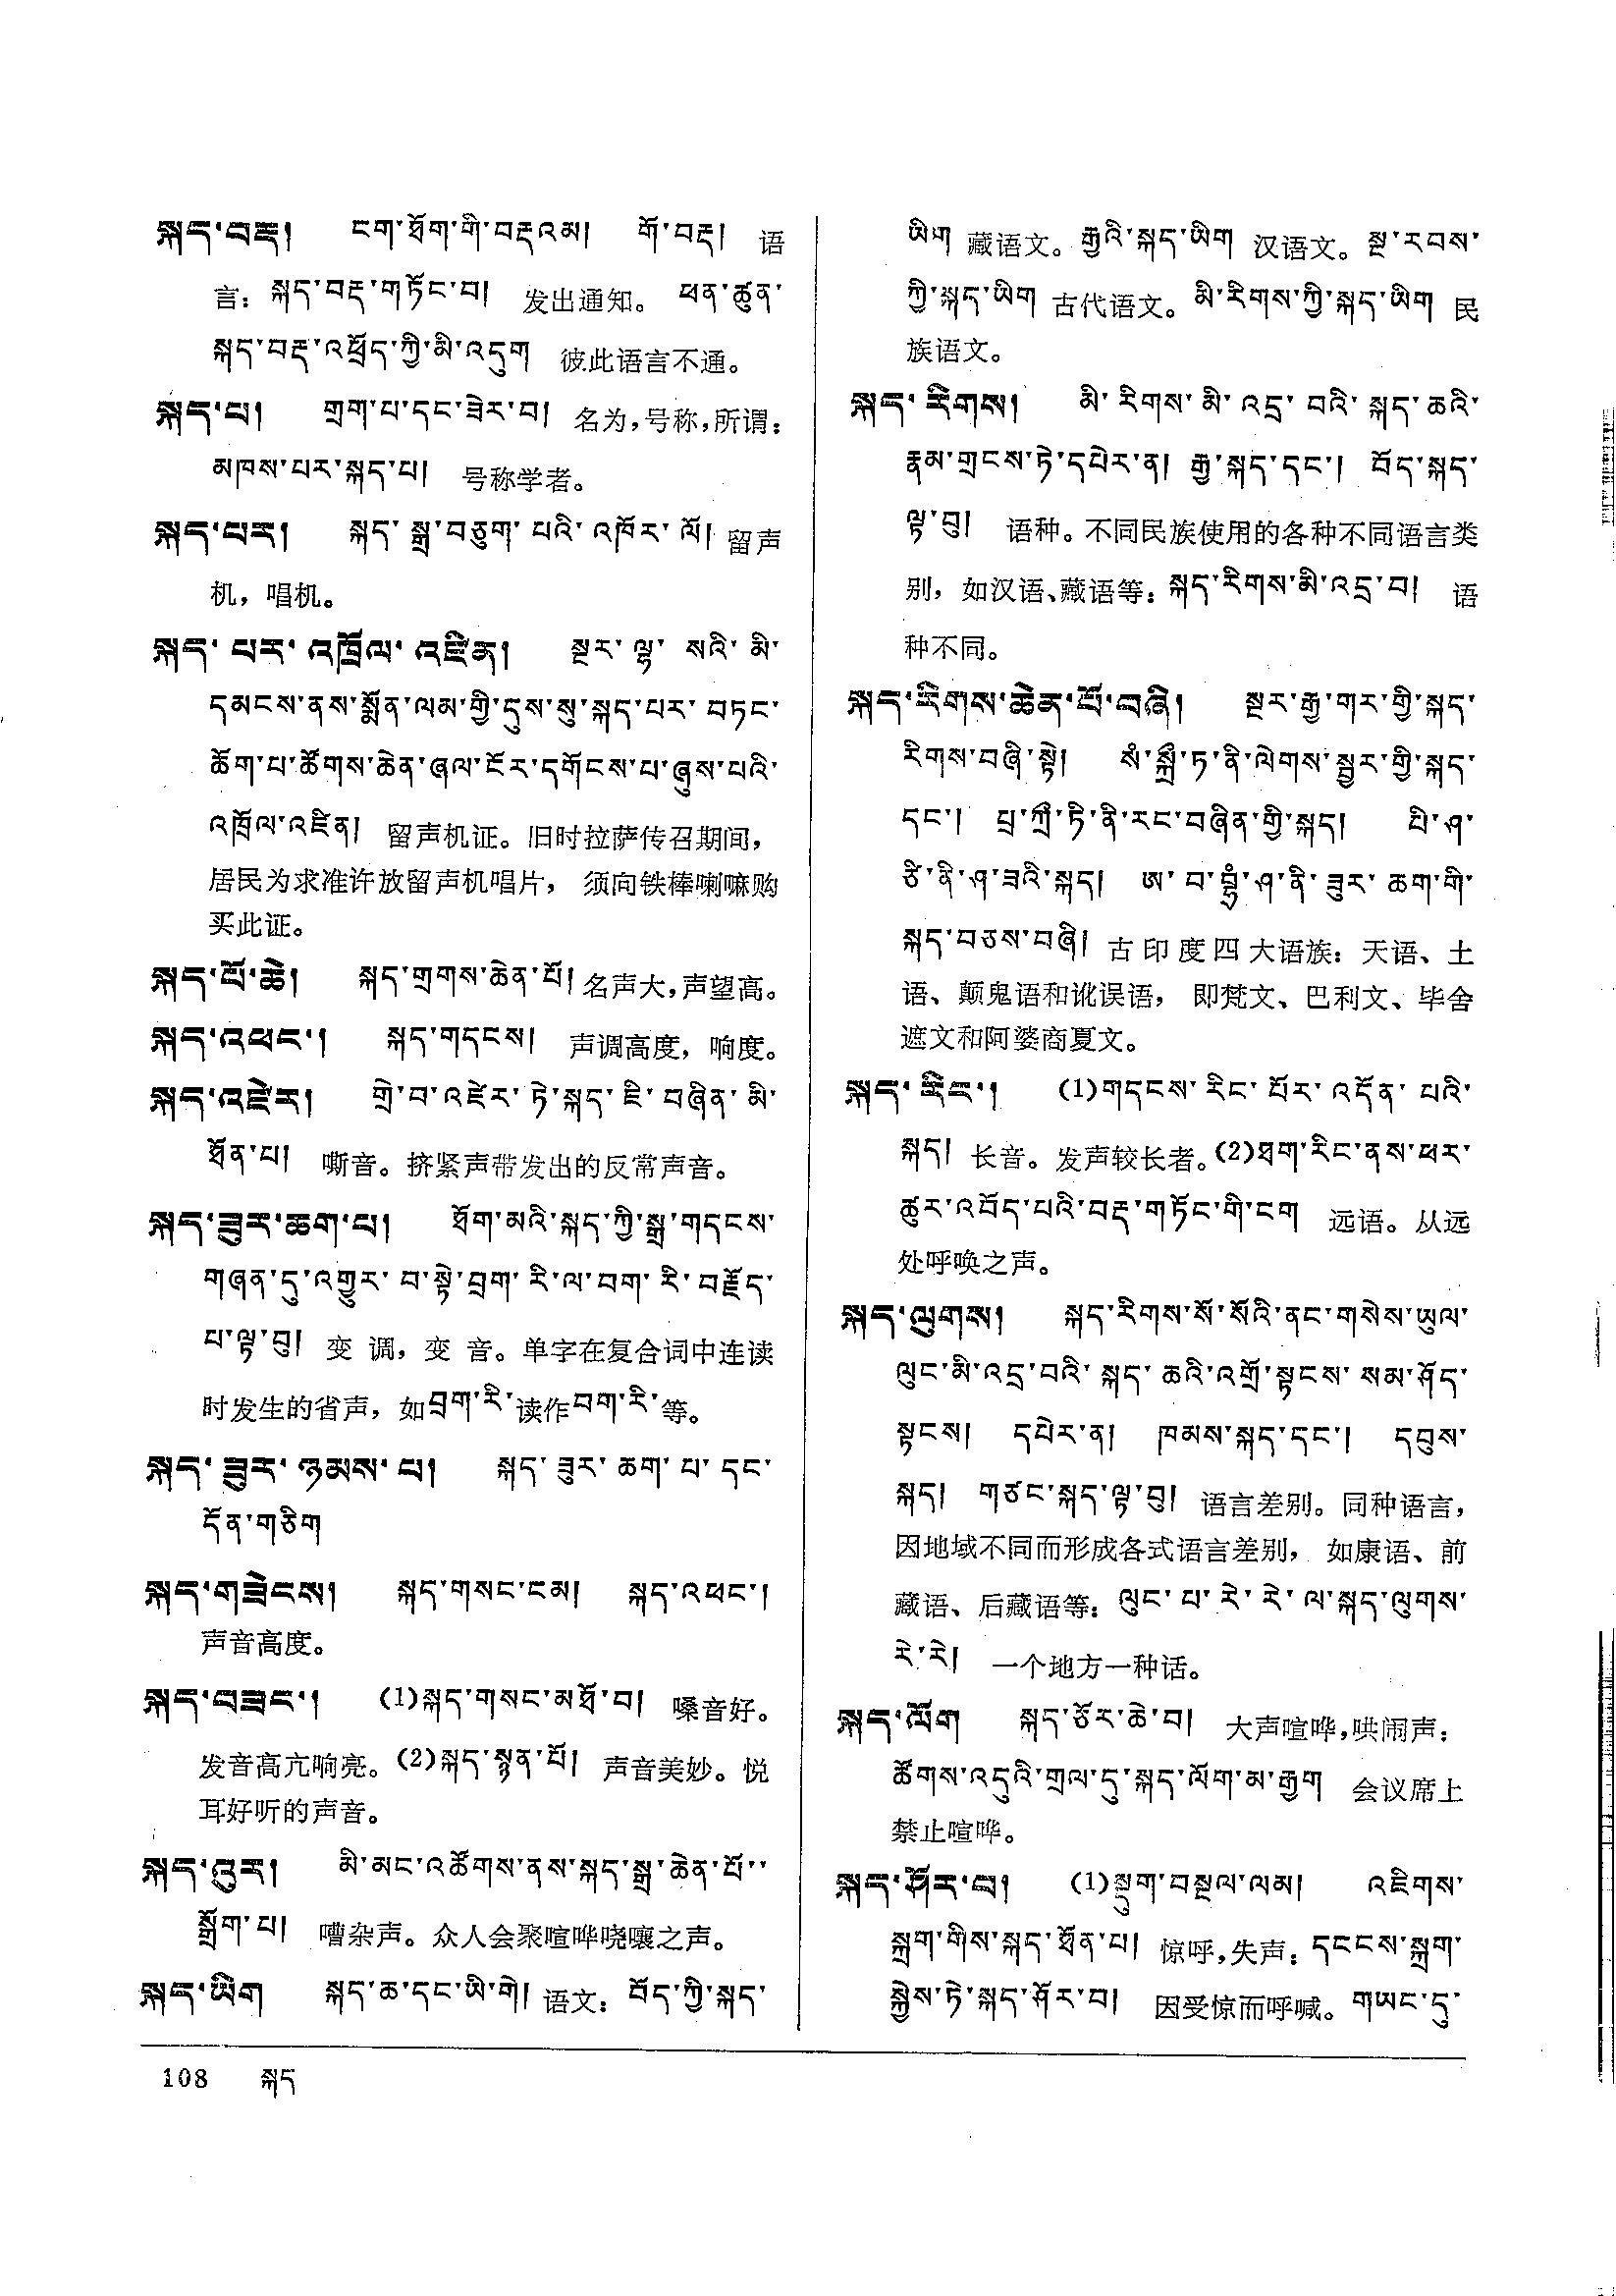 སྐད་བརྡ། ངག་ཐོག་གི་བརྡའམ། གོ་བརྡ། 语
言：སྐད་བརྡ་གཏོང་བ། 发出通知。 ཕན་ཚུན་
སྐད་བརྡ་འཕྲོད་ཀྱི་མི་འདུག 彼此语言不通。
སྐད་པ། གྲག་པ་དང་ཟེར་བ། 名为,号称,所谓：
མཁས་པར་སྐད་པ། 号称学者。
སྐད་པར། སྐད་སྒྲ་བཅུག་པའི་འཁོར་ལོ། 留声
机，唱机。
སྐད་པར་འཁྲོལ་འཛིན། སྔར་ལྷ་སའི་མི་
དམངས་ནས་སྨོན་ལམ་གྱི་དུས་སུ་སྐད་པར་བཏང་
ཆོག་པ་ཚོགས་ཆེན་ཞལ་ངོར་དགོངས་པ་ཞུས་པའི་
འཁྲོལ་འཛིན། 留声机证。旧时拉萨传召期间，
居民为求准许放留声机唱片， 须向铁棒喇嘛购
买此证。
སྐད་པོ་ཆེ། སྐད་གྲགས་ཆེན་པོ། 名声大,声望高。
སྐད་འཕང་། སྐད་གདངས། 声调高度，响度。
སྐད་འཛེར། གྲེ་བ་འཛེར་ཏེ་སྐད་ཇི་བཞིན་མི་
ཐོན་པ། 嘶音。挤紧声带发出的反常声音。
སྐད་ཟུར་ཆག་པ། ཐོག་མའི་སྐད་ཀྱི་སྒྲ་གདངས་
གཞན་དུ་འགྱུར་བ་སྟེ་བྲག་རི་ལ་བག་རི་བརྗོད་
པ་ལྟ་བུ། 变调，变音。单字在复合词中连读
时发生的省声，如བྲག་རི་读作བག་རི་等。
སྐད་ཟུར་ཉམས་པ། སྐད་ཟུར་ཆག་པ་དང་
དོན་གཅིག
སྐད་གཟེངས། སྐད་གསང་ངམ། སྐད་འཕང་།
声音高度。
སྐད་བཟང་། (1)སྐད་གསང་མཐོ་བ། 嗓音好。
发音高亢响亮。(2)སྐད་སྙན་པོ། 声音美妙。悦
耳好听的声音。
སྐད་འུར། མི་མང་འཚོགས་ནས་སྐད་སྒྲ་ཆེན་པོ་
སྒྲོག་པ། 嘈杂声。众人会聚喧哗哓嚷之声。
སྐད་ཡིག སྐད་ཆ་དང་ཡི་གེ། 语文：བོད་ཀྱི་སྐད་
ཡིག 藏语文。རྒྱའི་སྐད་ཡིག 汉语文。སྔ་རབས་
ཀྱི་སྐད་ཡིག 古代语文。མི་རིགས་ཀྱི་སྐད་ཡིག 民
族语文。
སྐད་རིགས། མི་རིགས་མི་འདྲ་བའི་སྐད་ཆའི་
རྣམ་གྲངས་ཏེ་དཔེར་ན། རྒྱ་སྐད་དང་། བོད་སྐད་
ལྟ་བུ། 语种。不同民族使用的各种不同语言类
别，如汉语、藏语等：སྐད་རིགས་མི་འདྲ་བ། 语
种不同。
སྐད་རིགས་ཆེན་པོ་བཞི། སྔར་རྒྱ་གར་གྱི་སྐད་
རིགས་བཞི་སྟེ། སཾ་སྐྲྀ་ཏ་ནི་ལེགས་སྦྱར་གྱི་སྐད་
དང་། པྲ་ཀྲྀ་ཏི་ནི་རང་བཞིན་གྱི་སྐད། པི་ཤ་
ཙི་ནི་ཤ་ཟའི་སྐད། ཨ་བ་བྷྲཾ་ཤ་ནི་ཟུར་ཆག་གི་
སྐད་བཅས་བཞི། 古印度四大语族：天语、土
语、颠鬼语和讹误语， 即梵文、巴利文、毕舍
遮文和阿婆商夏文。
སྐད་རིང་། (1)གདངས་རིང་པོར་འདོན་པའི་
སྐད། 长音。发声较长者。(2)ཐག་རིང་ནས་ཕར་
ཚུར་འབོད་པའི་བརྡ་གཏོང་གི་ངག 远语。从远
处呼唤之声。
སྐད་ལུགས། སྐད་རིགས་སོ་སོའི་ནང་གསེས་ཡུལ་
ལུང་མི་འདྲ་བའི་སྐད་ཆའི་འགྲོ་སྟངས་སམ་ཤོད་
སྟངས། དཔེར་ན། ཁམས་སྐད་དང་། དབུས་
སྐད། གཙང་སྐད་ལྟ་བུ། 语言差别。同种语言，
因地域不同而形成各式语言差别， 如康语、前
藏语、后藏语等：ལུང་པ་རེ་རེ་ལ་སྐད་ལུགས་
རེ་རེ། 一个地方一种话。
སྐད་ལོག སྐད་ཅོར་ཆེ་བ། 大声喧哗,哄闹声：
ཚོགས་འདུའི་གྲལ་དུ་སྐད་ལོག་མ་རྒྱག 会议席上
禁止喧哗。
སྐད་ཤོར་བ། (1)སྡུག་བསྔལ་ལམ། འཇིགས་
སྐྲག་གིས་སྐད་ཐོན་པ། 惊呼,失声：དངངས་སྐྲག་
སྐྱེས་ཏེ་སྐད་ཤོར་བ། 因受惊而呼喊。གཡང་དུ་
108 སྐད